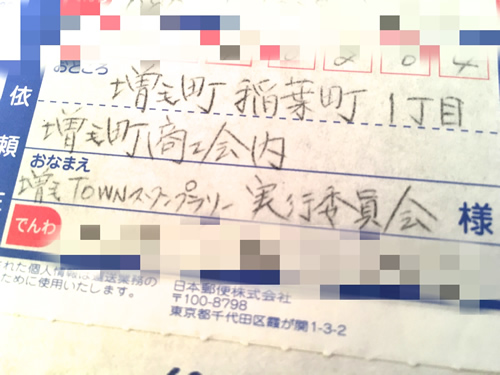 おところ
増毛町 稲葉町 1丁目
増毛町商工会内
おなまえ
増毛TOWNスタンプラリー 実行委員会 様
でんわ
依頼
された個人情報は運送業務の
ために使用いたします。
日本郵便株式会社
〒100-8798
東京都千代田区霞が関1-3-2